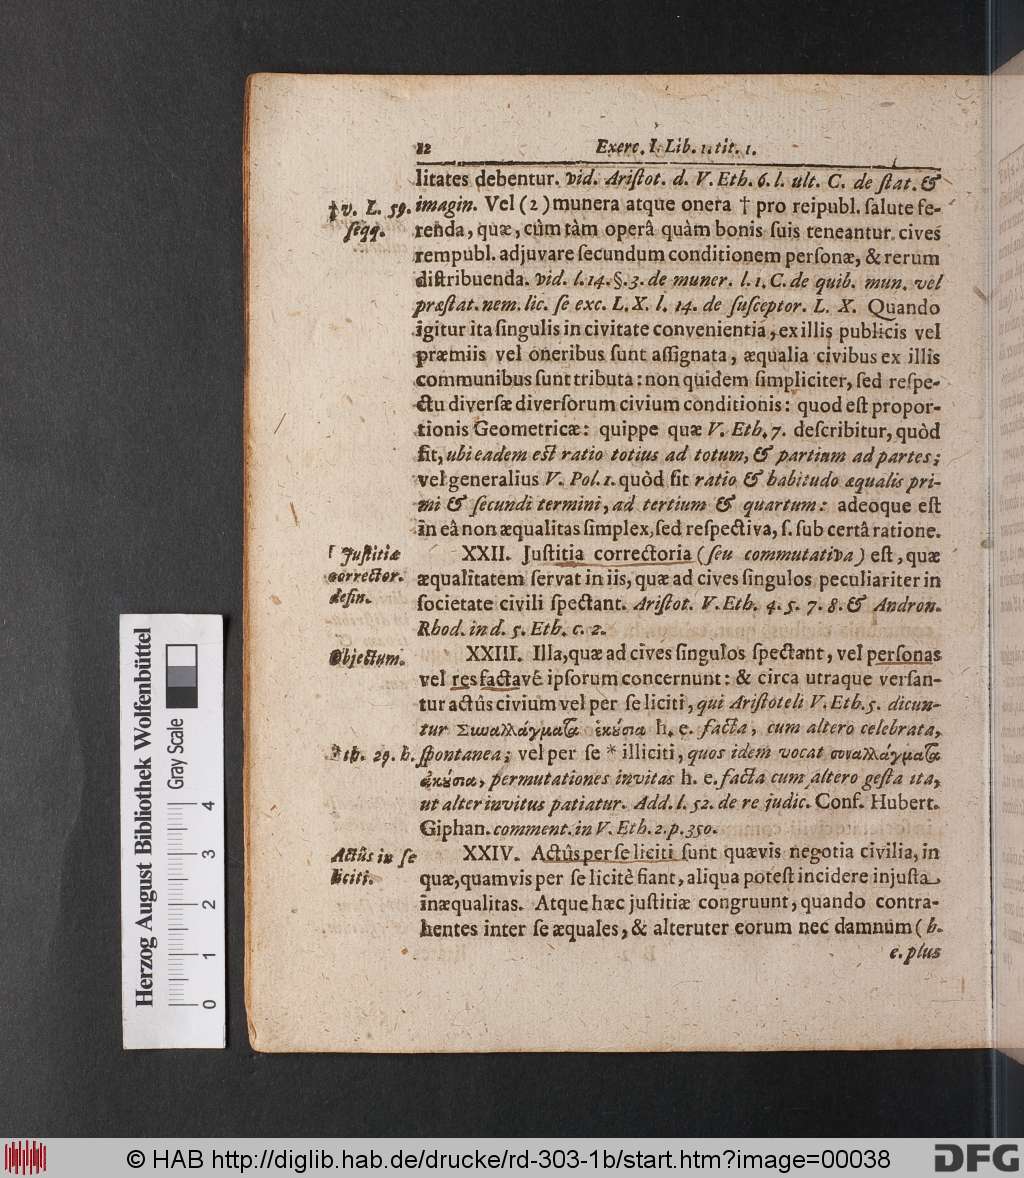 12 Exerc. I. Lib. 1. tit. 1.
litates debentur. vid. Ariſtot. d. V. Eth. 6. l. ult. C. de ſtat. &
† v. L. 59. ſeqq.
imagin. Vel (2) munera atque onera † pro reipubl. ſalute fe-
renda, quæ, cùm tàm operâ quàm bonis ſuis teneantur cives
rempubl. adjuvare ſecundum conditionem perſonæ, & rerum
diſtribuenda. vid. l. 14. §. 3. de muner. l. 1. C. de quib. mun. vel
præſtat. nem. lic. ſe exc. L. X. l. 14. de ſuſceptor. L. X. Quando
igitur ita ſingulis in civitate convenientia, ex illis publicis vel
præmiis vel oneribus ſunt aſſignata, æqualia civibus ex illis
communibus ſunt tributa: non quidem ſimpliciter, ſed reſpe-
ctu diverſæ diverſorum civium conditionis: quod eſt propor-
tionis Geometricæ: quippe quæ V. Eth. 7. deſcribitur, quòd
ſit, ubi eadem eſt ratio totius ad totum, & partium ad partes;
vel generalius V. Pol. 1. quòd ſit ratio & habitudo æqualis pri-
mi & ſecundi termini, ad tertium & quartum: adeoque eſt
in eâ non æqualitas ſimplex, ſed reſpectiva, ſ. ſub certâ ratione.
Juſtitiæ corrector. defin.
XXII. Juſtitia correctoria (ſeu commutativa) eſt, quæ
æqualitatem ſervat in iis, quæ ad cives ſingulos peculiariter in
ſocietate civili ſpectant. Ariſtot. V. Eth. 4. 5. 7. 8. & Andron.
Rhod. in d. 5. Eth. c. 2.
Objectum.
XXIII. Illa, quæ ad cives ſingulos ſpectant, vel perſonas
vel res factavè ipſorum concernunt: & circa utraque verſan-
tur actûs civium vel per ſe liciti, qui Ariſtoteli V. Eth. 5. dicun-
tur Συναλλάγματα ἑκέσια h. e. facta, cum altero celebrata,
* th. 29. h.
ſpontanea; vel per ſe * illiciti, quos idem vocat συναλλάγματα
ἀκέσια, permutationes invitas h. e. facta cum altero geſta ita,
ut alter invitus patiatur. Add. l. 52. de re judic. Conf. Hubert.
Giphan. comment. in V. Eth. 2. p. 350.
Actûs in ſe liciti.
XXIV. Actûs per ſe liciti ſunt quævis negotia civilia, in
quæ, quamvis per ſe licitè fiant, aliqua poteſt incidere injuſta
inæqualitas. Atque hæc juſtitiæ congruunt, quando contra-
hentes inter ſe æquales, & alteruter eorum nec damnum (h.
e. plus
Herzog August Bibliothek Wolfenbüttel
Gray Scale
0 1 2 3 4
© HAB http://diglib.hab.de/drucke/rd-303-1b/start.htm?image=00038
DFG